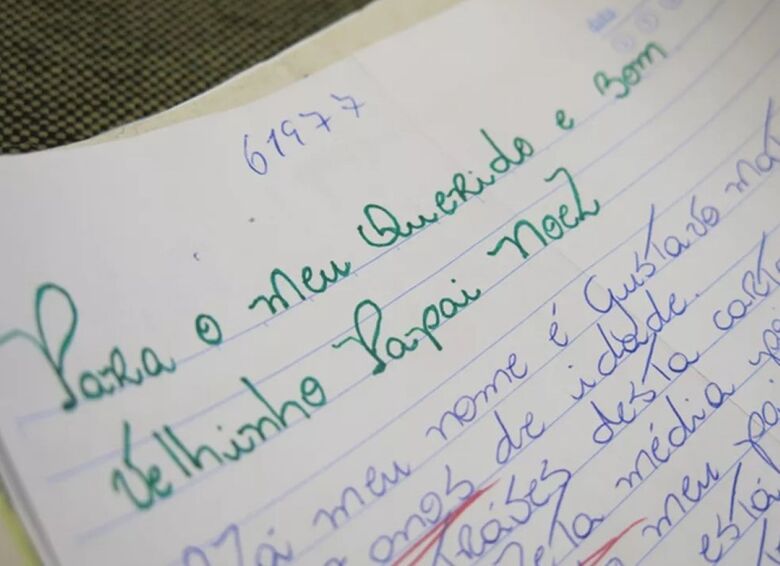 61977
Para o meu Querido e Bom
Velhinho Papai Noel
meu nome é Gustavo
anos de idade.
desta
média
meu
está